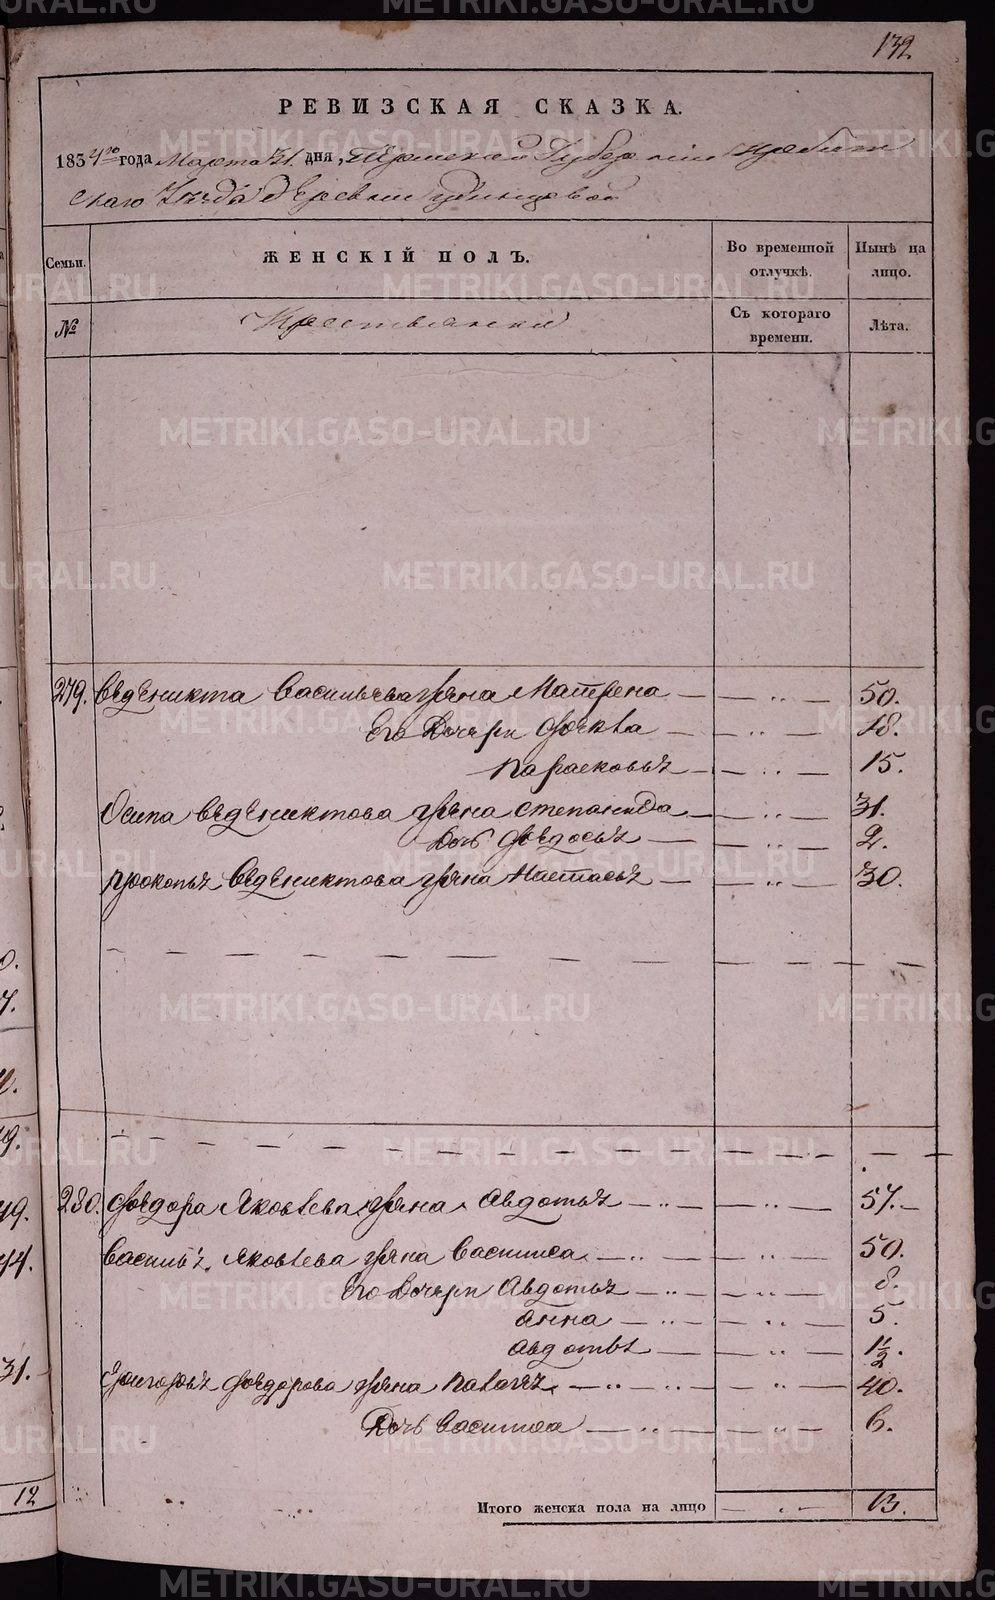 132.
РЕВИЗСКАЯ СКАЗКА.
1834го года Марта 31. дня, Пермской Губернии Ирбит
скаго Уезда деревни
Семьи.
ЖЕНСКІЙ ПОЛЪ.
Во временной отлучкѣ.
Нынѣ на лицо.
№
Крестьянски
Съ котораго времени.
Лѣта.
279. Веденикта Васильева жена Матрена — — „ — 50.
Его Дочери Фекла — — „ — 18.
Парасковья — — „ — 15.
Осипа Ведениктова жена Степанида — — „ — 31.
Дочь Федосья — — „ — 2.
Прокопья Ведениктова жена Настасья — — „ — 30.
280. Федора Яковлева жена Авдотья — „ — — „ — 57.
Василья Яковлева жена Васииса — „ — — „ — 50.
Его Дочери Авдотья — „ — — „ — 8.
Анна — „ — — „ — 5.
Авдотья — „ — — „ — 1½.
Григорья Федорова жена — „ — — „ — 40.
Дочь Васииса — „ — — „ — 6.
Итого женска пола на лицо — „ — 13.
0.
7.
9.
49.
44.
31.
12
METRIKI.GASO-URAL.RU